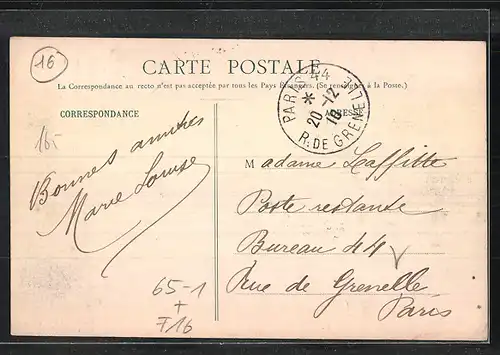 16
CARTE POSTALE
La Correspondance au recto n'est pas acceptée par tous les Pays Étrangers. (Se renseigner à la Poste.)
CORRESPONDANCE
ADRESSE
PARIS 44
20-12
R. DE GRENELLE
16-
Bonnes amitiés
Marie Louise
Madame Laffitte
Poste restante
Bureau 44
Rue de Grenelle
Paris
65-1
+
F16